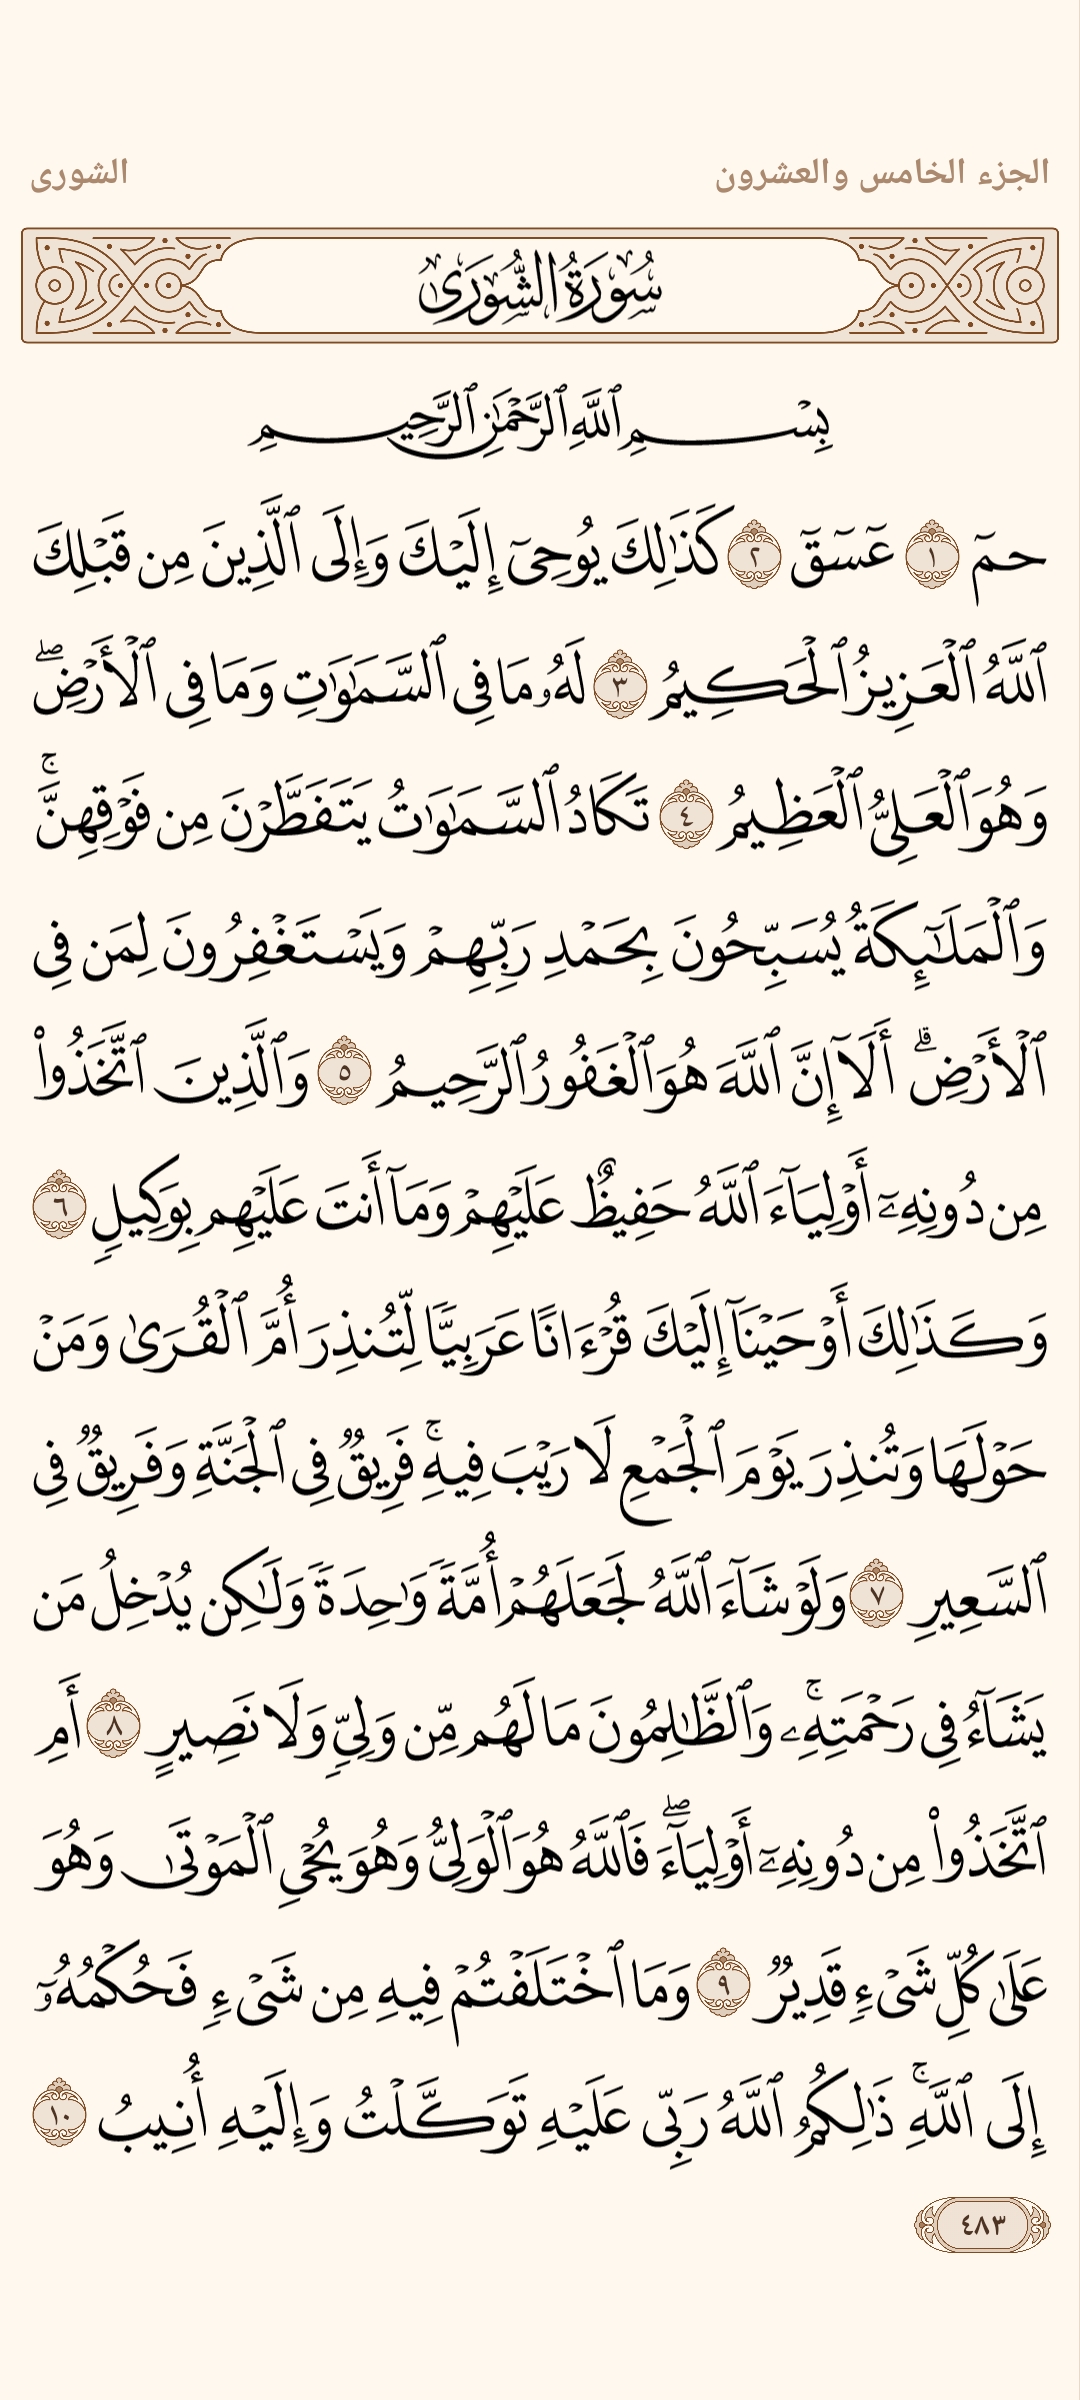 الجزء الخامس والعشرون
الشورى
سُورَةُ الشُّورَىٰ
بِسْمِ ٱللَّهِ ٱلرَّحْمَٰنِ ٱلرَّحِيمِ
حمٓ ١ عٓسٓقٓ ٢ كَذَٰلِكَ يُوحِىٓ إِلَيْكَ وَإِلَى ٱلَّذِينَ مِن قَبْلِكَ
ٱللَّهُ ٱلْعَزِيزُ ٱلْحَكِيمُ ٣ لَهُۥ مَا فِى ٱلسَّمَٰوَٰتِ وَمَا فِى ٱلْأَرْضِۖ
وَهُوَ ٱلْعَلِىُّ ٱلْعَظِيمُ ٤ تَكَادُ ٱلسَّمَٰوَٰتُ يَتَفَطَّرْنَ مِن فَوْقِهِنَّۚ
وَٱلْمَلَٰٓئِكَةُ يُسَبِّحُونَ بِحَمْدِ رَبِّهِمْ وَيَسْتَغْفِرُونَ لِمَن فِى
ٱلْأَرْضِۗ أَلَآ إِنَّ ٱللَّهَ هُوَ ٱلْغَفُورُ ٱلرَّحِيمُ ٥ وَٱلَّذِينَ ٱتَّخَذُوا۟
مِن دُونِهِۦٓ أَوْلِيَآءَ ٱللَّهُ حَفِيظٌ عَلَيْهِمْ وَمَآ أَنتَ عَلَيْهِم بِوَكِيلٍ ٦
وَكَذَٰلِكَ أَوْحَيْنَآ إِلَيْكَ قُرْءَانًا عَرَبِيًّا لِّتُنذِرَ أُمَّ ٱلْقُرَىٰ وَمَنْ
حَوْلَهَا وَتُنذِرَ يَوْمَ ٱلْجَمْعِ لَا رَيْبَ فِيهِۚ فَرِيقٌ فِى ٱلْجَنَّةِ وَفَرِيقٌ فِى
ٱلسَّعِيرِ ٧ وَلَوْ شَآءَ ٱللَّهُ لَجَعَلَهُمْ أُمَّةً وَٰحِدَةً وَلَٰكِن يُدْخِلُ مَن
يَشَآءُ فِى رَحْمَتِهِۦۚ وَٱلظَّٰلِمُونَ مَا لَهُم مِّن وَلِىٍّ وَلَا نَصِيرٍ ٨ أَمِ
ٱتَّخَذُوا۟ مِن دُونِهِۦٓ أَوْلِيَآءَۖ فَٱللَّهُ هُوَ ٱلْوَلِىُّ وَهُوَ يُحْىِ ٱلْمَوْتَىٰ وَهُوَ
عَلَىٰ كُلِّ شَىْءٍ قَدِيرٌ ٩ وَمَا ٱخْتَلَفْتُمْ فِيهِ مِن شَىْءٍ فَحُكْمُهُۥٓ
إِلَى ٱللَّهِۚ ذَٰلِكُمُ ٱللَّهُ رَبِّى عَلَيْهِ تَوَكَّلْتُ وَإِلَيْهِ أُنِيبُ ١٠
٤٨٣